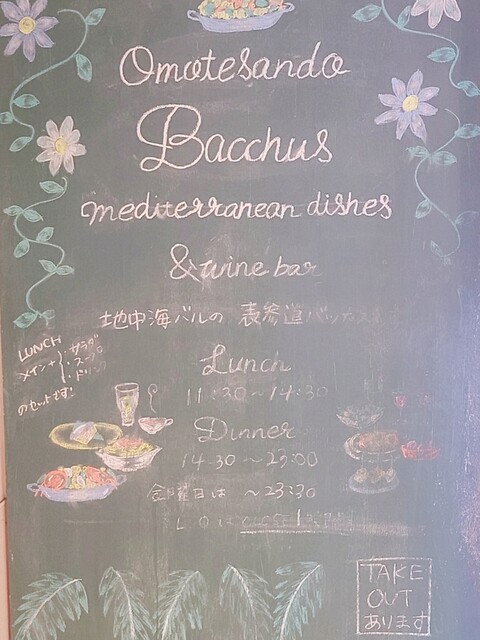 Omotesando
Bacchus
mediterranean dishes
& wine bar
地中海バルの 表参道バッカス
LUNCH
メイン+
・サラダ
・スープ
・ドリンク
のセットです!
Lunch
11:30~14:30
Dinner
14:30~23:00
金曜日は ~23:30
TAKE
OUT
あります